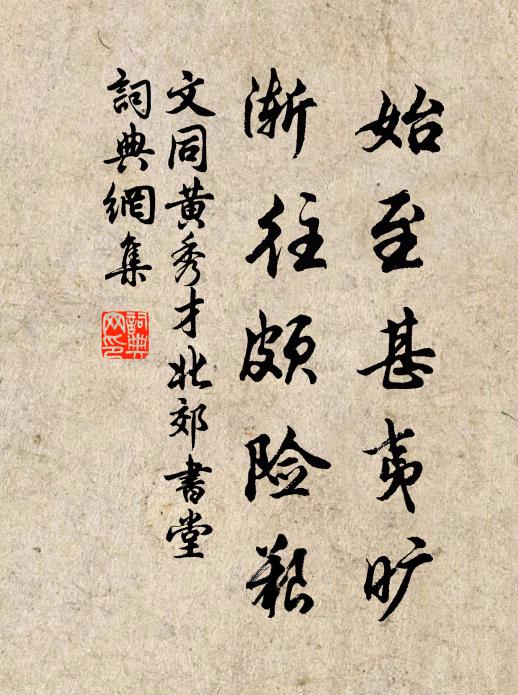 始至甚夷旷
渐往颇险艰
文同黄秀才北郊書堂
詞典網集
詞典
网印